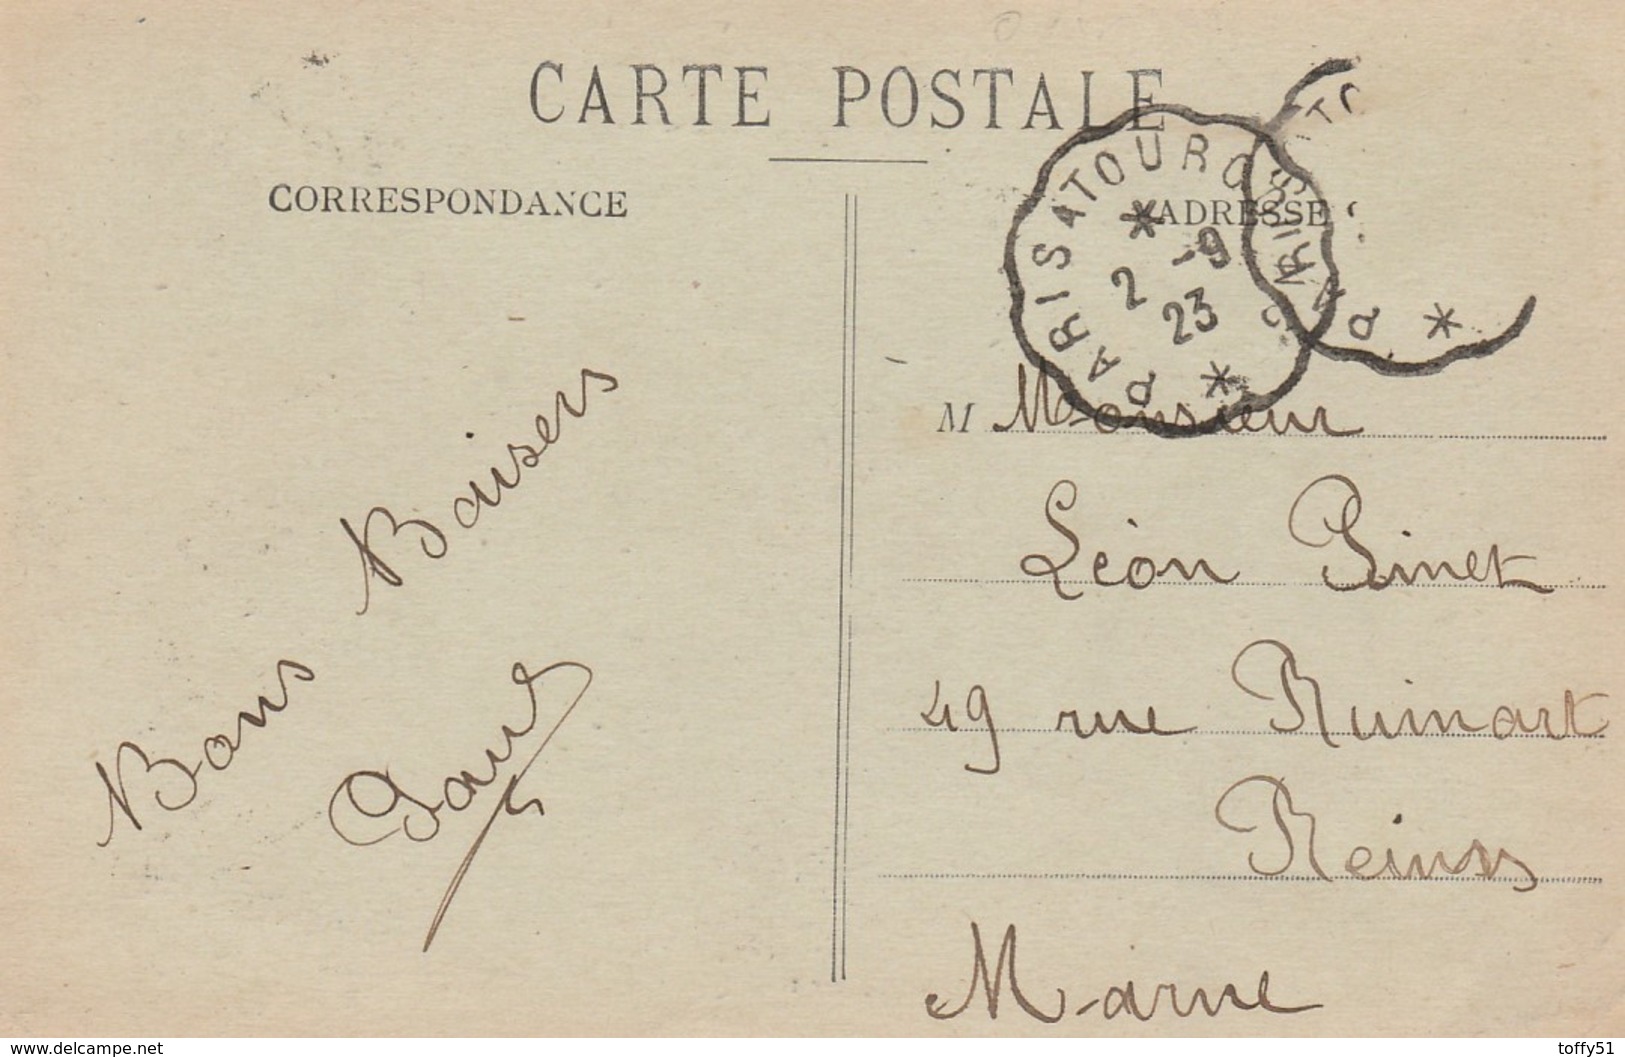 CARTE POSTALE
CORRESPONDANCE
ADRESSE
PARIS A TOURS
2 -9
23
Bons Baisers
M Monsieur
Léon Pinet
49 rue Ruinart
Reims
Marne
www.delcampe.net
toffy51